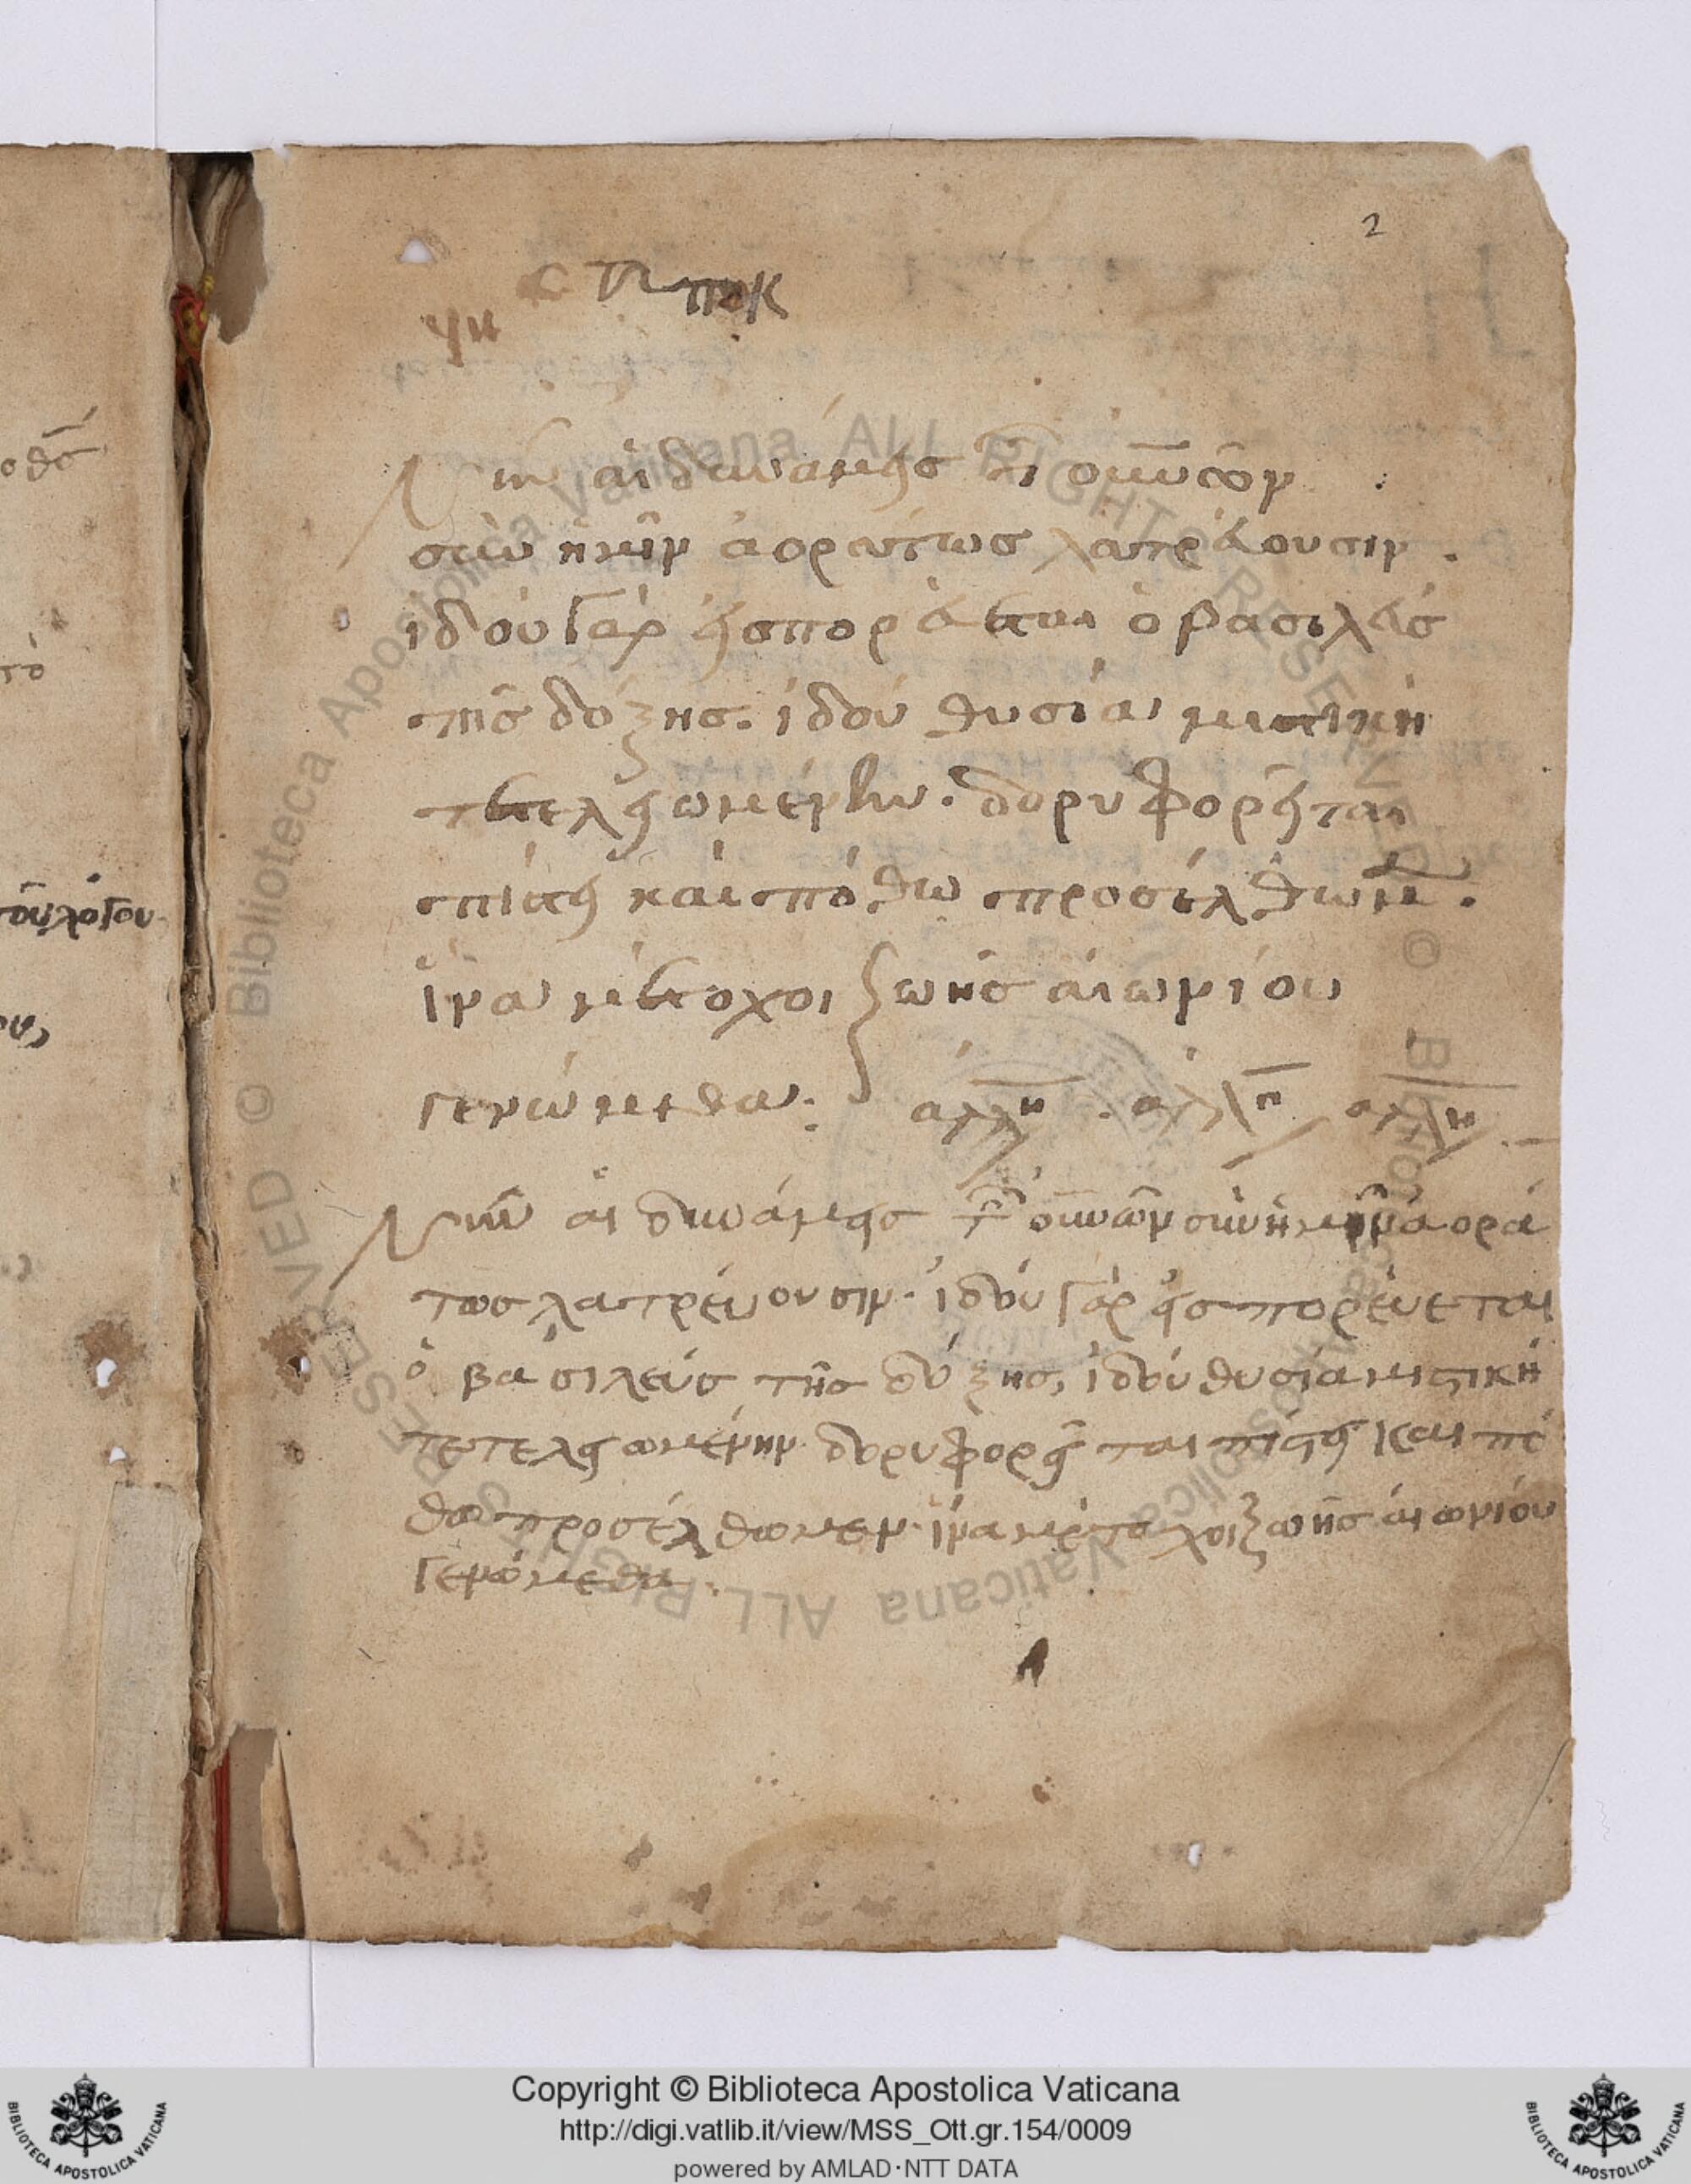 2
Νῦν αἱ δυνάμεις τῶν οὐνῶν
σὺν ἡμῖν ἀοράτως λατρεύουσιν.
ἰδοὺ γὰρ εἰσπορεύεται ὁ βασιλεὺς
τῆς δόξης. ἰδοὺ θυσία μιστικὴ
τετελειωμένην. δορυφορεῖται
πίστει καὶ πόθω προσέλθωμεν.
ἵνα μέτοχοι ζωῆς αἰωνίου
γενώμεθα: ἀλλη. ἀλλη ἀλλη
Νῦν αἱ δυνάμεις τῶν οὐνῶν σὺν ἡμῖν ἀορά
τως λατρεύουσιν. ἰδοὺ γὰρ εἰσπορεύεται
ὁ βασιλεὺς τῆς δόξης, ἰδοὺ θυσία μιστικὴ
τετελειωμένην δορυφορεῖται πίστει και πό
θω προσέλθωμεν. ἵνα μέτοχοι ζωῆς αἰωνίου
γενόμεθα.
Copyright © Biblioteca Apostolica Vaticana
http://digi.vatlib.it/view/MSS_Ott.gr.154/0009
powered by AMLAD·NTT DATA
BIBLIOTECA APOSTOLICA VATICANA
BIBLIOTECA APOSTOLICA VATICANA